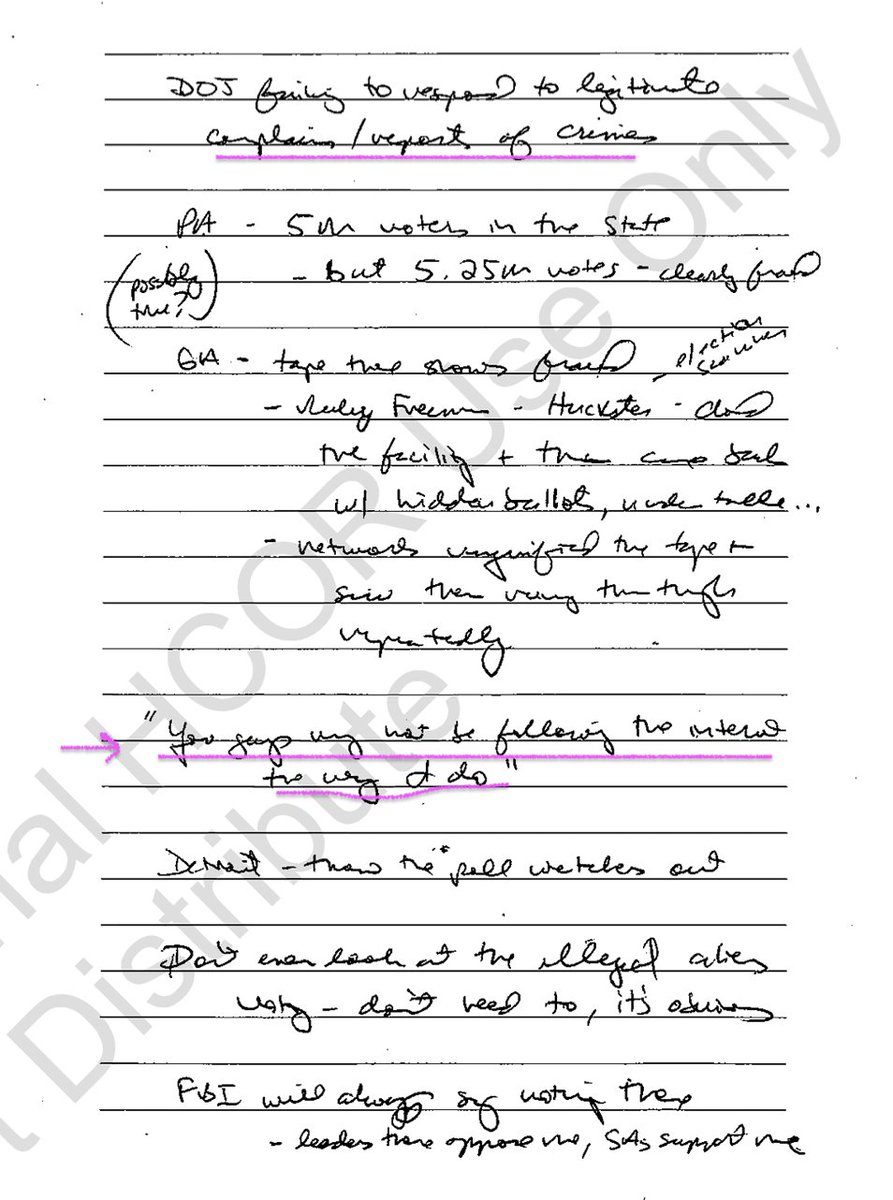 DOJ failing to respond to legitimate
complains/reports of crimes
PA - 5M voters in the State
(possibly true?) - but 5.25M votes - clearly fraud
GA - tape there shows fraud - election
- Ruby Freeman - Huckster - closed
the facility + then came back
w/ hidden ballots, under table...
- networks magnified the tape +
saw them running them through
repeatedly
"You guys may not be following the internet
the way I do"
Detroit - threw the poll watchers out
Don't even look at the illegal aliens
voting - don't need to, it's obvious
FBI will always say nothing there
- leaders there oppose me, SAs support me
HCOR Use Only
Distribute